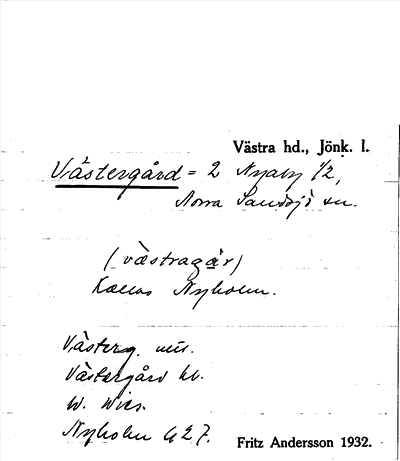 Västra hd., Jönk. l.
Västergård = 2 Nyaby 1/2,
Norra Sandsjö sn.
(västragår)
Kallas Nyholm.
Västerg. mtl.
Västergård hv.
Nyholm G 27.
Fritz Andersson 1932.